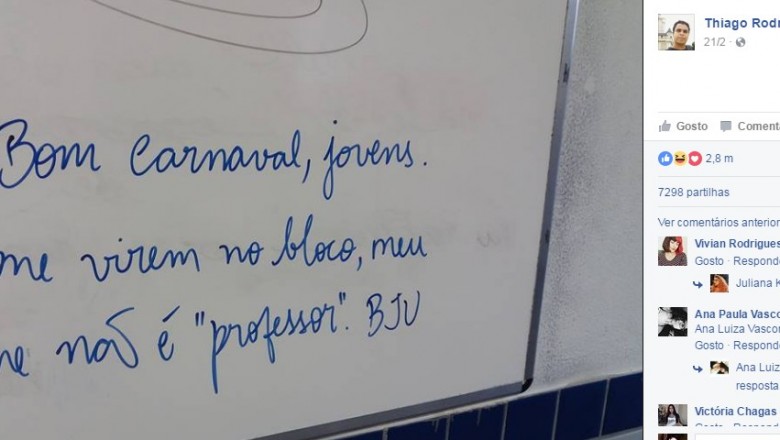 Bom carnaval, jovens.
me virem no bloco, meu
não é "professor". BJU
Thiago Rodr
21/2
Gosto Coment
2,8 m
7298 partilhas
Ver comentários anterior
Vivian Rodrigues
Gosto · Responde
Juliana K
Ana Paula Vasco
Ana Luiza Vascon
Gosto · Responde
Ana Luiz
resposta
Victória Chagas
Gosto · Responde